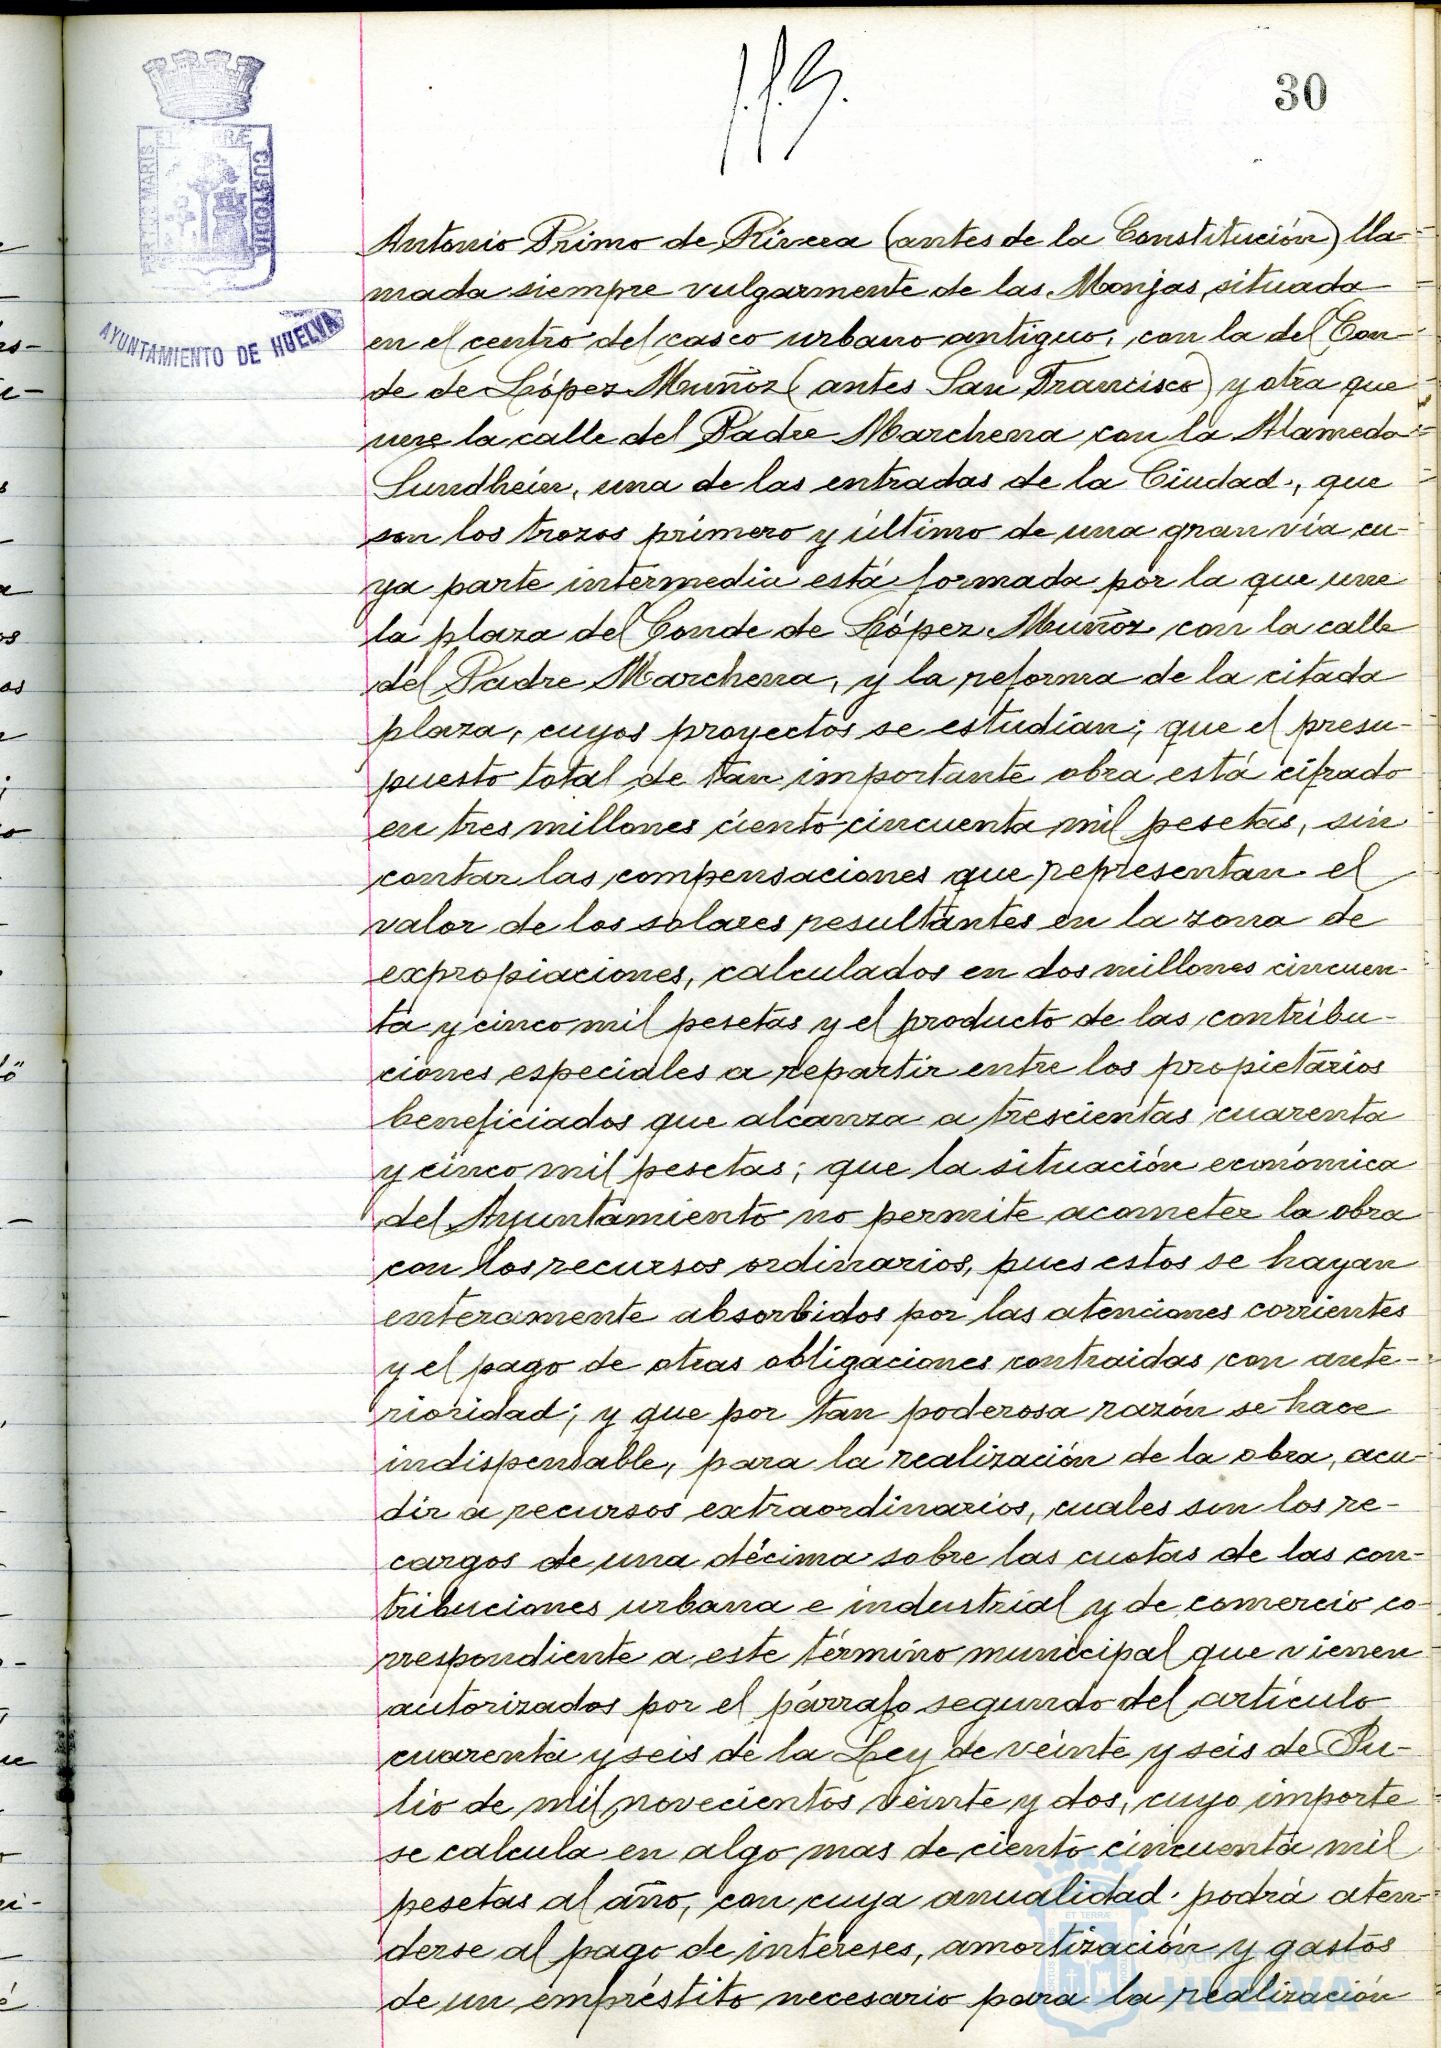 30
PORTUS MARIS ET TERRÆ CUSTODIA
AYUNTAMIENTO DE HUELVA
Antonio Primo de Rivera (antes de la Constitución) lla-
mada siempre vulgarmente de las Monjas, situada
en el centro del casco urbano antiguo, con la del Con-
de de López Muñoz (antes San Francisco) y otra que
une la calle del Padre Marchena con la Alameda
Sundhein, una de las entradas de la Ciudad, que
son los trozos primero y último de una gran vía cu-
ya parte intermedia está formada por la que une
la plaza del Conde de López Muñoz con la calle
del Padre Marchena, y la reforma de la citada
plaza, cuyos proyectos se estudian; que el presu-
puesto total de tan importante obra está cifrado
en tres millones ciento cincuenta mil pesetas, sin
contar las compensaciones que representan el
valor de los solares resultantes en la zona de
expropiaciones, calculados en dos millones cincuen-
ta y cinco mil pesetas y el producto de las contribu-
ciones especiales a repartir entre los propietarios
beneficiados que alcanza a trescientas cuarenta
y cinco mil pesetas; que la situación económica
del Ayuntamiento no permite acometer la obra
con los recursos ordinarios, pues estos se hayan
enteramente absorbidos por las atenciones corrientes
y el pago de otras obligaciones contraidas con ante-
rioridad; y que por tan poderosa razón se hace
indispensable, para la realización de la obra, acu-
dir a recursos extraordinarios, cuales son los re-
cargos de una décima sobre las cuotas de las con-
tribuciones urbana e industrial y de comercio co-
rrespondiente a este término municipal que vienen
autorizados por el párrafo segundo del artículo
cuarenta y seis de la Ley de veinte y seis de Ju-
lio de mil novecientos veinte y dos, cuyo importe
se calcula en algo mas de ciento cincuenta mil
pesetas al año, con cuya anualidad podrá aten-
derse al pago de intereses, amortización y gastos
de un empréstito necesario para la realización
Ayuntamiento de
HUELVA